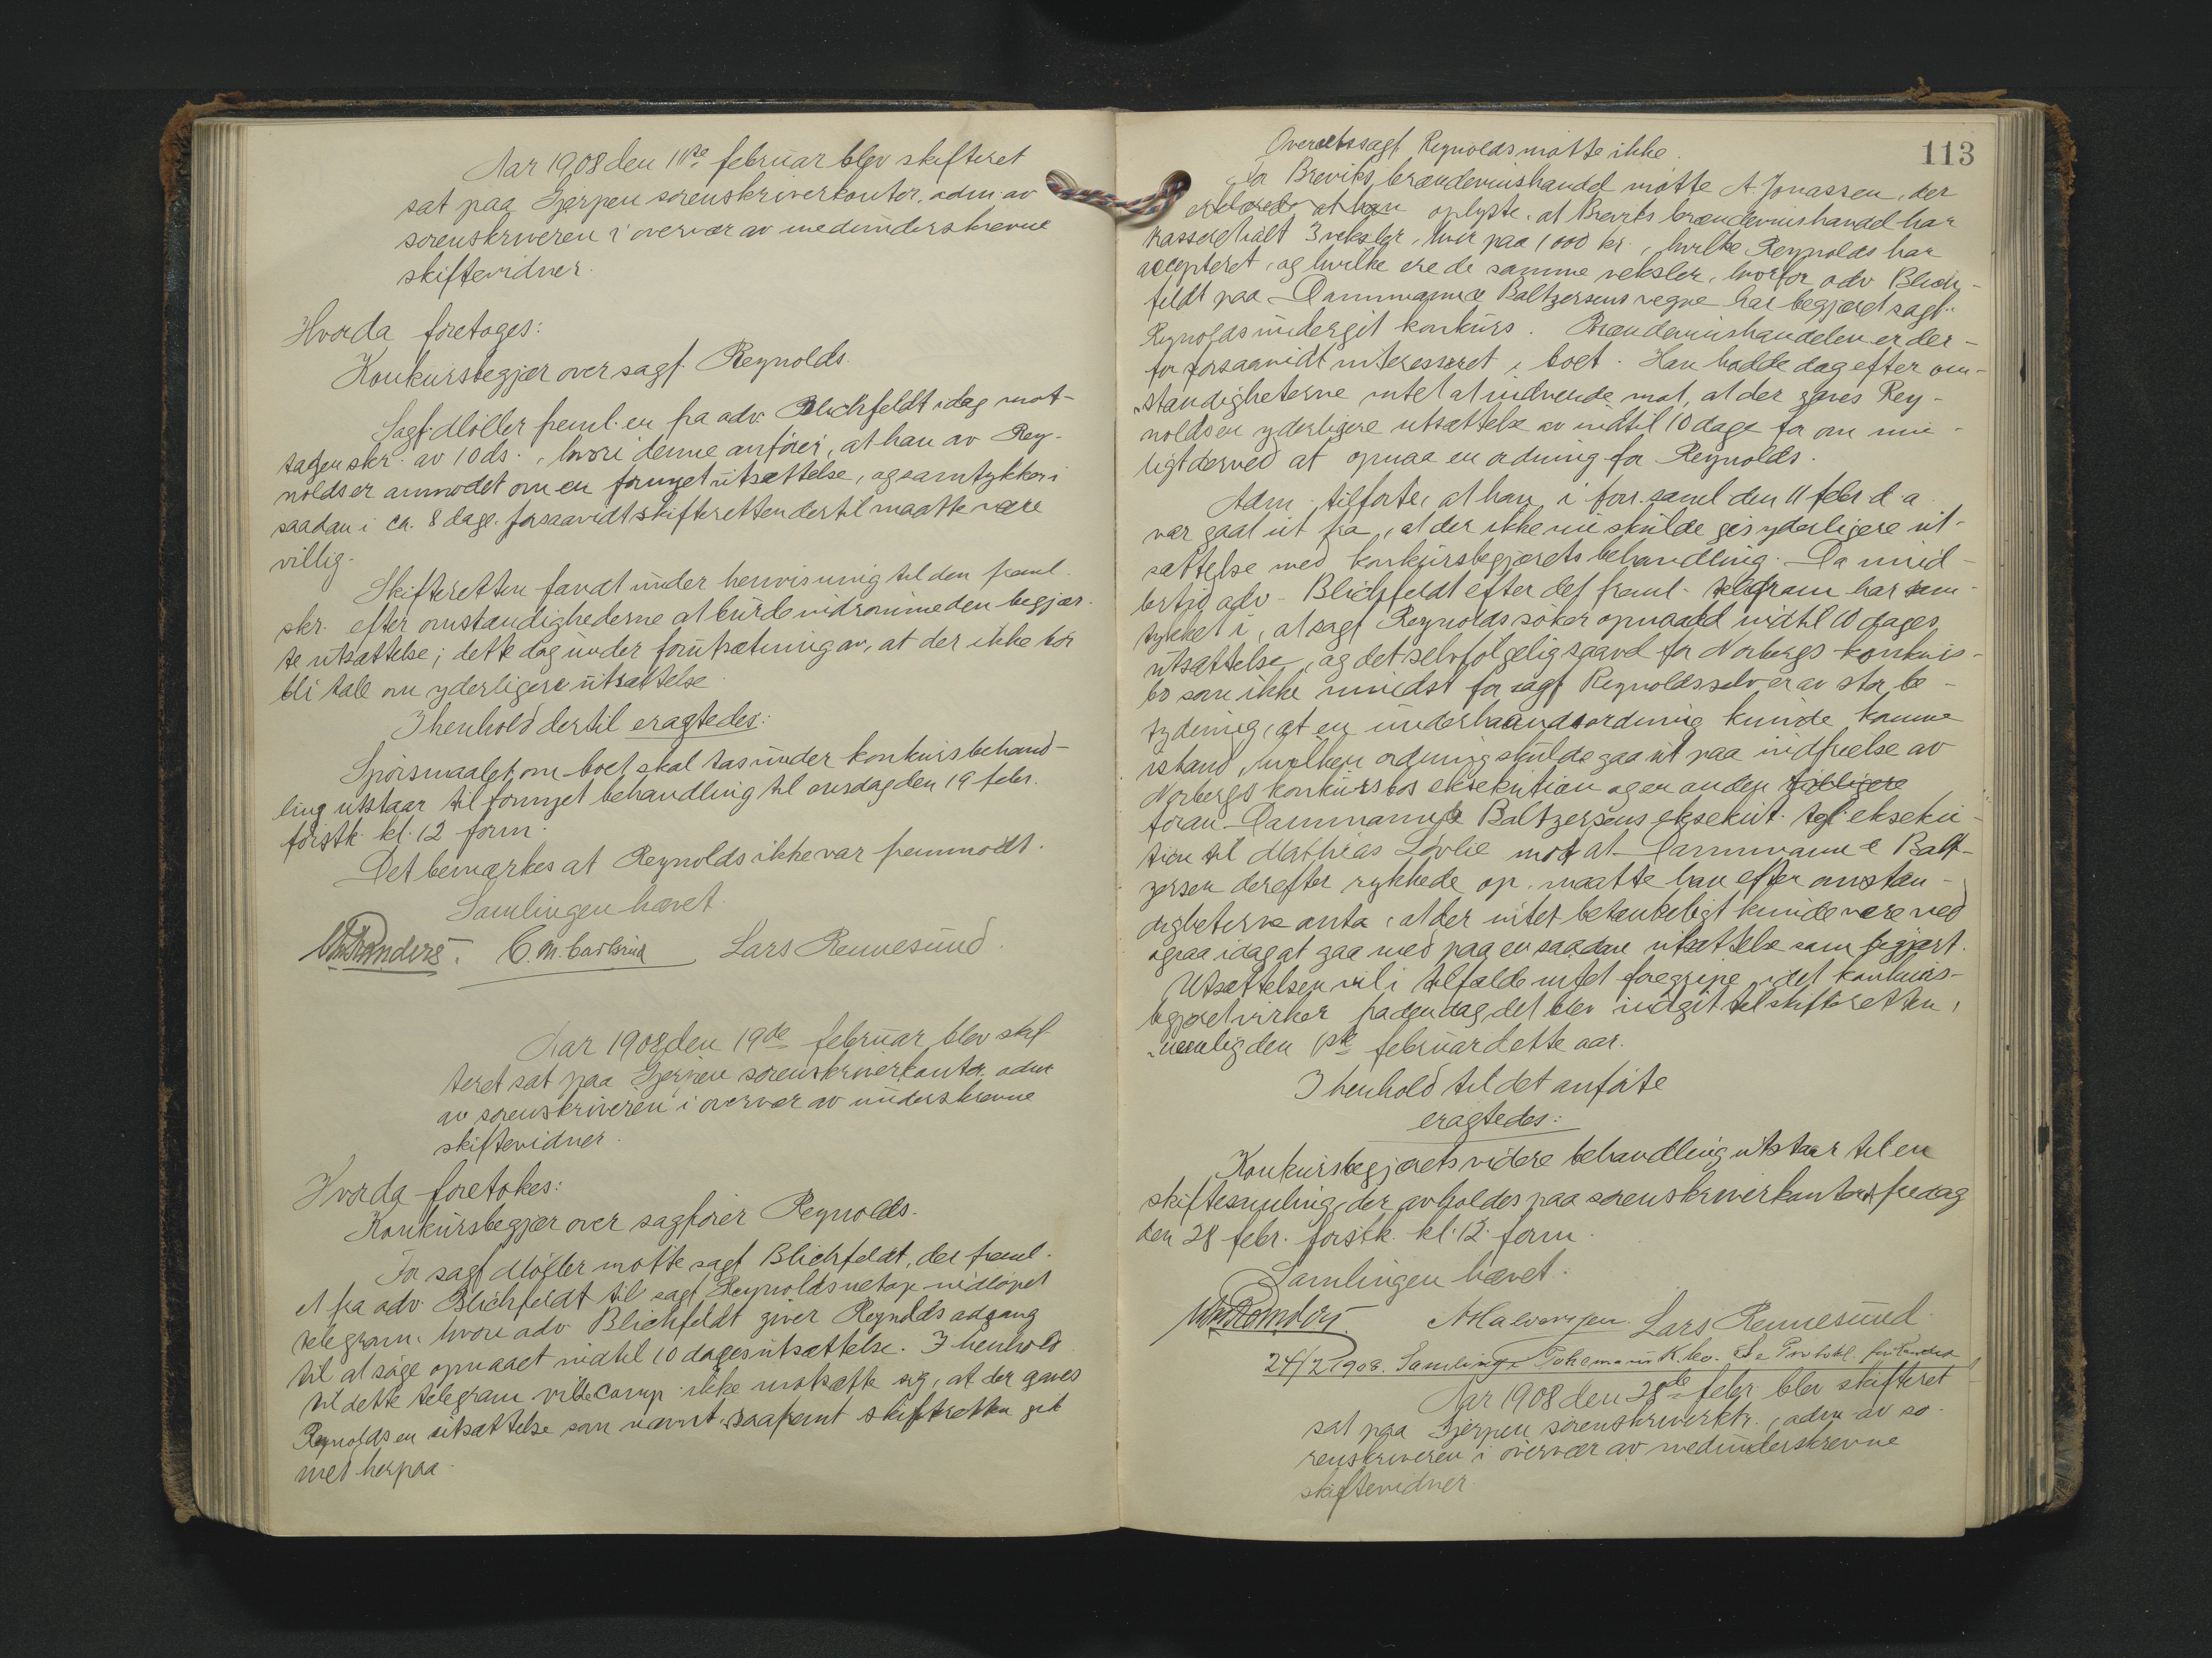 Aar 1908 den 11te februar blev skifteret
sat paa Gjerpen sorenskriverkontor, adm. av
sorenskriveren i overvær av medunderskrevne
skiftevidner.
Hvorda foretoges:
Konkursbegjær over sagf. Reynolds.
Sagf. Møller freml. en fra adv. Blichfeldt idag mot-
tagen skr. av 10 ds., hvori denne anfører, at han av Rey-
nolds er anmodet om en fornyet utsættelse, og samtykker i
saadan i ca. 8 dage, forsaavidt skifteretten dertil maatte være
villig.
Skifteretten fandt under henvisning til den freml.
skr. efter omstændighederne at burde indrømme den begjær-
te utsættelse; dette dog under forutsætning av, at der ikke bør
bli tale om yderligere utsættelse.
I henhold dertil eragtedes:
Spørsmaalet om boet skal tas under konkursbehand-
ling utstaar til fornyet behandling til onsdag den 19 febr.
førstk. kl. 12 form.
Det bemærkes at Reynolds ikke var fremmødt.
Samlingen hævet.
C. M. Carlsrud Lars Rennesund.
Aar 1908 den 19de februar blev skif-
teret sat paa Gjerpen sorenskriverkontor, adm.
av sorenskriveren i overvær av underskrevne
skiftevidner.
Hvorda foretokes:
Konkursbegjær over sagfører Reynolds.
For sagf Møller møtte sagf Blichfeldt, der freml.
et fra adv. Blichfeldt til sagf Reynolds netop indløpet
telegram, hvori adv. Blichfeldt giver Reynolds adgang
til at søge opnaaet indtil 10 dages utsættelse. I henhold
til dette telegram vilde comp. ikke motsætte sig, at der gaves
Reynolds en utsættelse som nævnt, saafremt skifteretten gik
med herpaa.
113
Overretssagf Reynolds møtte ikke.
For Breviks brændevinshandel møtte A. Jonassen, der
erklærede at han oplyste, at Breviks brændevinshandel har
3 veksler, hver paa 1000 kr., hvilke Reynolds har
accepteret, og hvilke ere de samme veksler, hvorfor adv Blich-
feldt paa Dammann & Baltzersens vegne har begjært sagf.
Reynolds undergit konkurs. Brændevinshandelen er der-
for forsaavidt interesseret i boet. Han hadde dog efter om-
stændigheterne intet at indvende mot, at der gaves Rey-
nolds en yderligere utsættelse av indtil 10 dage for om mu-
ligt derved at opnaa en ordning for Reynolds.
Adm. tilførte, at han i forr. saml. den 11 febr d. a.
var gaat ut fra, at der ikke nu skulde gis yderligere ut-
sættelse med konkursbegjærets behandling. Da imid-
lertid adv. Blichfeldt efter det freml. telegram har sam-
tykket i, at sagf Reynolds søker opnaadd indtil 10 dages
utsættelse, og det selvfølgelig saavel for Norbergs konkurs-
bo som ikke mindst for sagf Reynolds selv er av stor be-
tydning, at en underhaandsordning kunde komme
istand, hvilken ordning skulde gaa ut paa indfrielse av
Norbergs konkursbos eksekution og en anden tidligere
foran Dammann & Baltzersens eksekut. tgl. ekseku-
tion til Mathias Løvlie mot at Dammann & Balt-
zersen derefter rykkede op, maatte han efter omstæn-
digheterne anta, at der intet betænkeligt kunde være ved
ogsaa idag at gaa med paa en saadan utsættelse som begjært.
Utsættelsen vil i tilfælde intet foregripe, idet konkurs-
begjæret virker fra den dag, det blev indgit til skifteretten,
nemlig den 1ste februar dette aar.
I henhold til det anførte
eragtedes:
Konkursbegjærets videre behandling utstaar til en
skiftesamling, der avholdes paa sorenskriverkontoret fredag
den 28 febr. førstk. kl. 12 form.
Samlingen hævet.
A Halvorsen. Lars Rennesund.
24/2 1908. Samling i K. bo. Se Protokol
Aar 1908 den 28de febr. blev skifteret
sat paa Gjerpen sorenskriverktr., adm. av so-
renskriveren i overvær av medunderskrevne
skiftevidner.